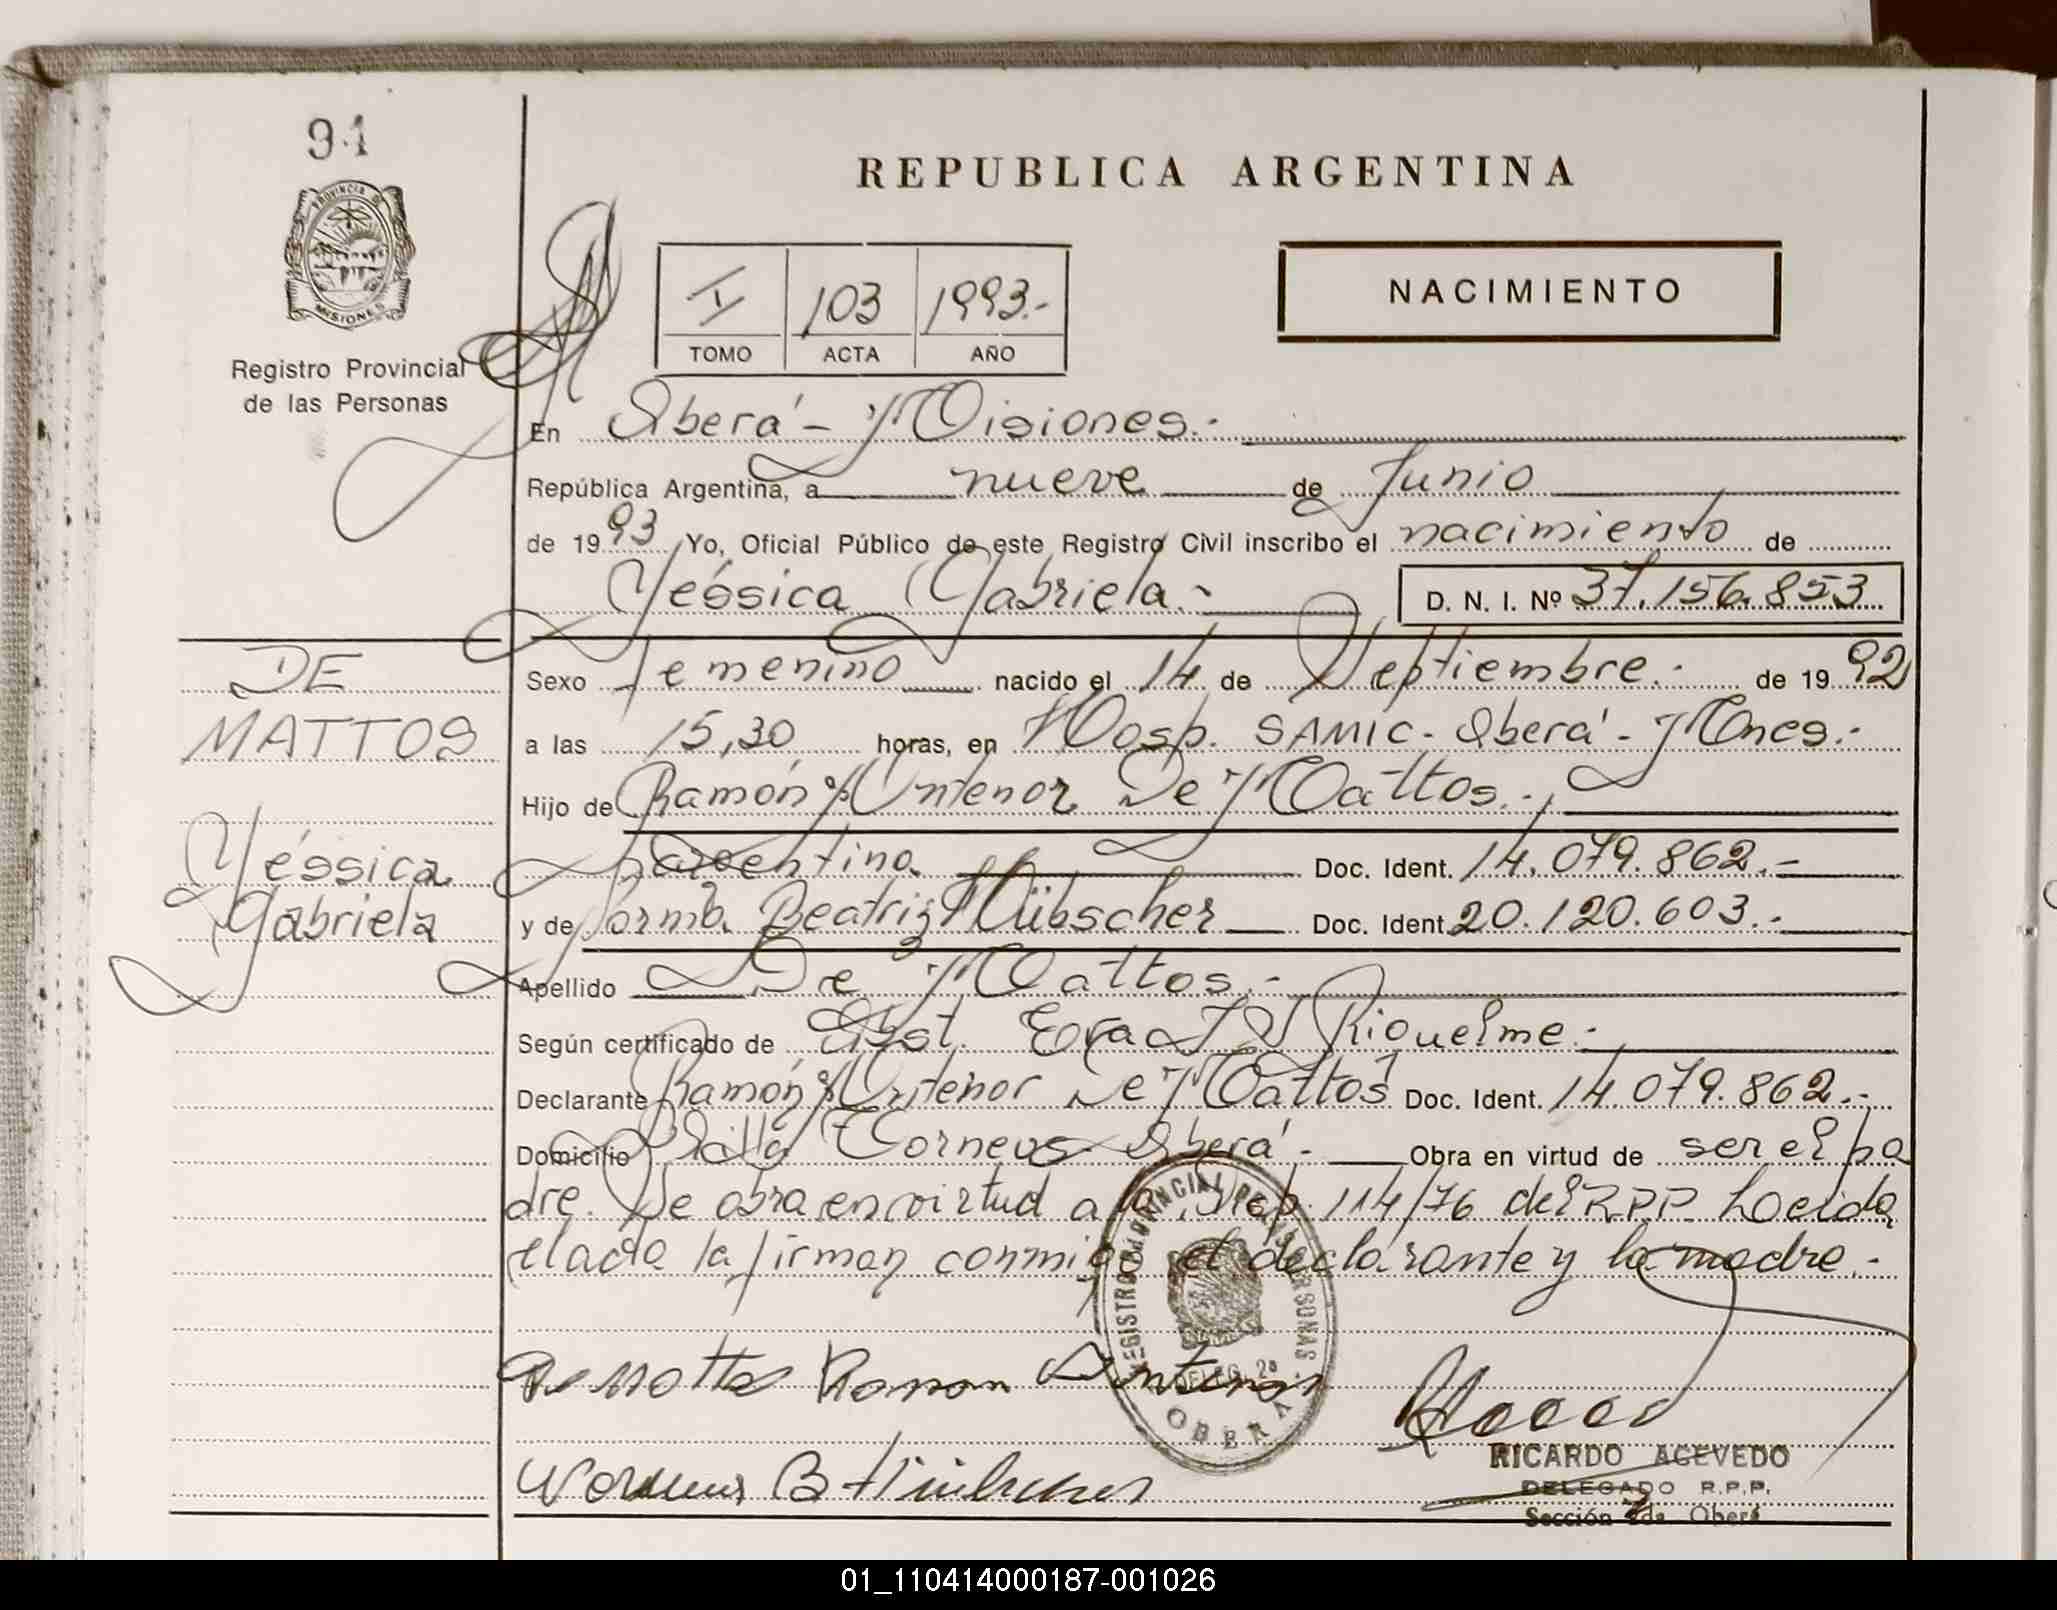 94
PROVINCIA DE
MISIONES
Registro Provincial
de las Personas
REPUBLICA ARGENTINA
I 103 1993.-
TOMO ACTA AÑO
NACIMIENTO
En Oberá - Misiones.-
República Argentina, a nueve de Junio
de 1993 Yo, Oficial Público de este Registro Civil inscribo el nacimiento de
Yéssica Gabriela.- D. N. I. Nº 37.156.853
DE
MATTOS
Yéssica
Gabriela
Sexo femenino nacido el 14 de Septiembre.- de 1992
a las 15,30 horas, en Hosp. SAMIC - Oberá - Mnes.-
Hijo de Ramón Antenor De Mattos.-,
argentino Doc. Ident. 14.079.862.-
y de Norma Beatriz Hübscher Doc. Ident. 20.120.603.-
Apellido De Mattos.-
Según certificado de Obst. Eva Riquelme.-
Declarante Ramón Antenor De Mattos Doc. Ident. 14.079.862.-
Domicilio Villa Oberá.- Obra en virtud de ser el pa
dre. Se obra en virtud a la Disp. 114/76 del R.P.P. Leida
el acta la firman conmigo el declarante y la madre.-
REGISTRO PROVINCIAL DE LAS PERSONAS
DELEG. 2a
OBERA
De Mattos Ramon Antenor
Norma B Hübscher
RICARDO ACEVEDO
DELEGADO R.P.P.
Sección 2da Oberá
01_110414000187-001026